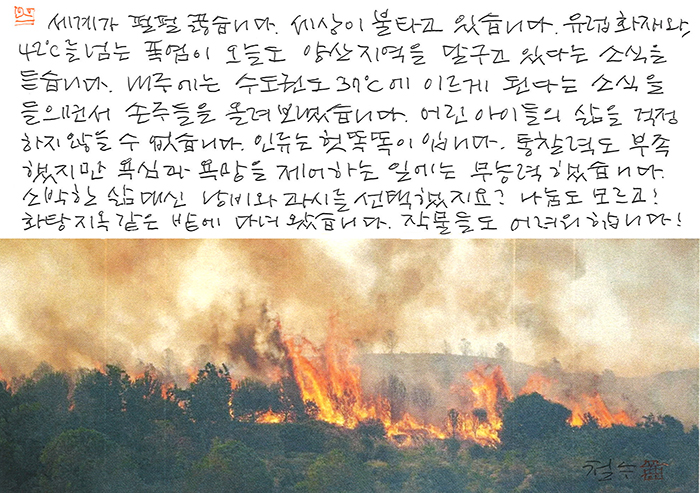 세계가 펄펄 끓습니다. 세상이 불타고 있습니다. 유럽 화재와,
42℃를 넘는 폭염이 오늘도 양산지역을 달구고 있다는 소식을
듣습니다. 내주에는 수도권도 37℃에 이르게 된다는 소식을
들으면서 손주들을 올려보냈습니다. 어린 아이들의 삶을 걱정
하지 않을 수 없습니다. 인류는 헛똑똑이 입니다. 통찰력도 부족
했지만 욕심과 욕망을 제어하는 일에는 무능력했습니다.
소박한 삶 대신 낭비와 과시를 선택했지요? 나눔도 모르고!
화탕지옥 같은 밭에 다녀왔습니다. 작물들도 어려워 합니다!
철수